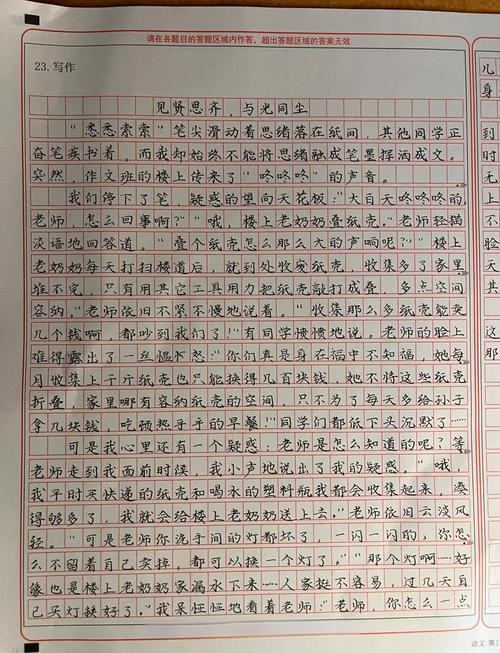 请在各题目的答题区域内作答，超出答题区域的答案无效
23.写作
见贤思齐，与光同尘
“悉悉索索”笔尖滑动着思绪落在纸间，其他同学正
奋笔疾书着，而我却始终不能将思绪融成笔墨挥洒成文。
突然，作文班的楼上传来了“咚咚咚”的声音。
我们停下了笔，疑惑的望向天花板：“大白天咚咚咚的，
老师，怎么回事啊？”“哦，楼上老奶奶叠纸壳。”老师轻描
淡语地回答道。“叠个纸壳怎么那么大的声响呢？”“楼上
老奶奶每天打扫楼道后，就到处收废纸壳，收集多了家里
堆不完，只有用其它工具用力把纸壳敲打成叠，多点空间
容纳。”老师依旧不紧不慢地说着。“收集那么多纸壳能卖
几个钱啊，都吵到我们了！”有同学愤愤地说。老师的脸上
难得露出了一丝愠怒：“你们真是身在福中不知福，她每
月收集上千斤纸壳也只能换得几百块钱，她不将这些纸壳
折叠，家里哪有容纳纸壳的空间，只不为了每天多给孙子
拿几块钱，吃顿热乎乎的早餐！”同学们都低下头沉默了……
可是我心里还有一个疑惑，老师是怎么知道的呢？等
老师走到我面前时候，我小声地说出了我的疑惑，“哦，
我平时买快递的纸壳和喝水的塑料瓶我都会收集起来，凑
得够多了，我就会给楼上老奶奶送上去。”老师依旧云淡风
轻。“可是老师你洗手间的灯都坏了，一闪一闪的，你怎
么不留着自己卖掉，都可以换一个灯了。”“那个灯啊……好
像也是楼上老奶奶家漏水下来……人家挺不容易，过几天自
己买灯换好了。”我呆怔怔地看着老师：“老师，你怎么一点
语文 第2
儿
身
时
无
上
是
其
这
那